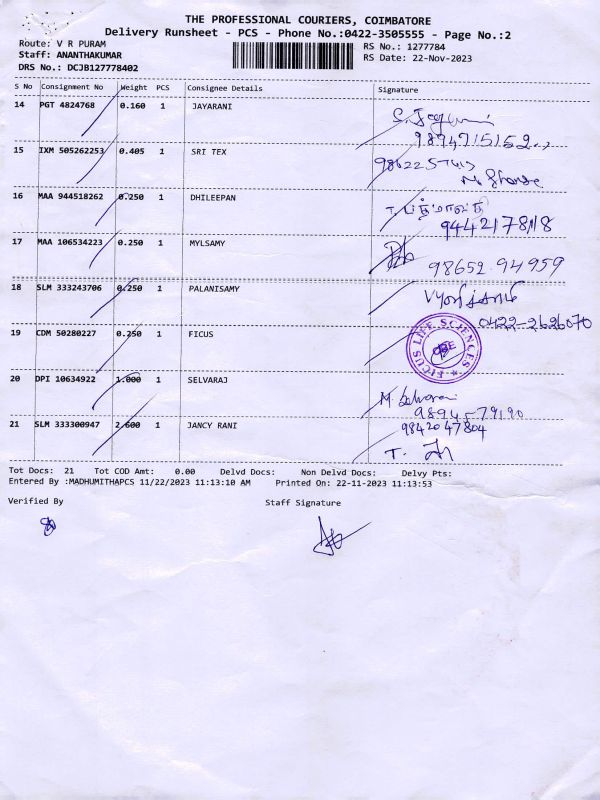 THE PROFESSIONAL COURIERS, COIMBATORE
Delivery Runsheet - PCS - Phone No.:0422-3505555 - Page No.:2
Route: V R PURAM
RS No.: 1277784
Staff: ANANTHAKUMAR
RS Date: 22-Nov-2023
DRS No.: DCJB127778402
S No Consignment No Weight PCS Consignee Details Signature
14 PGT 4824768 0.160 1 JAYARANI
9894715152
15 IXM 505262253 0.405 1 SRI TEX
16 MAA 944518262 0.250 1 DHILEEPAN
17 MAA 106534223 0.250 1 MYLSAMY
98652 94959
18 SLM 333243706 0.250 1 PALANISAMY
0422-2626070
19 CDM 50280227 0.250 1 FICUS
FICUS LIFE SCIENCES
CBE
20 DPI 10634922 1.000 1 SELVARAJ
21 SLM 333300947 2.600 1 JANCY RANI
9842047804
Tot Docs: 21 Tot COD Amt: 0.00 Delvd Docs: Non Delvd Docs: Delvy Pts:
Entered By :MADHUMITHAPCS 11/22/2023 11:13:10 AM Printed On: 22-11-2023 11:13:53
Verified By
Staff Signature